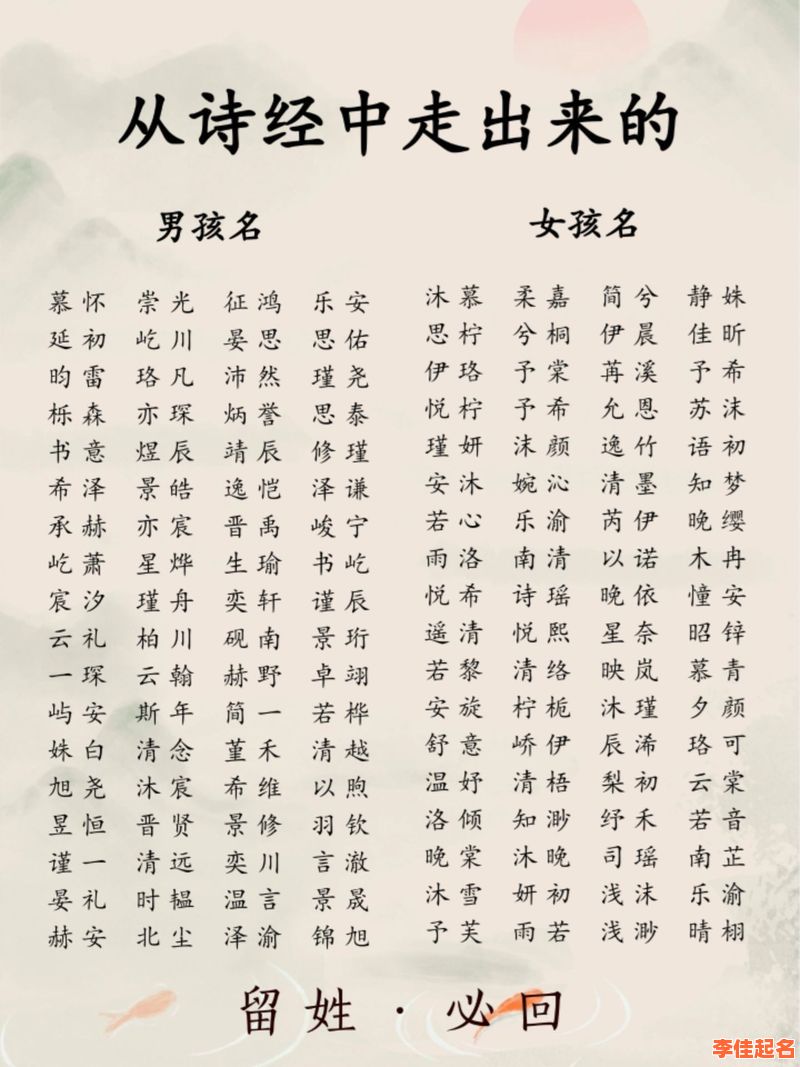 从诗经中走出来的
男孩名
慕怀 崇光 征鸿 乐安
延初 屹川 晏思 思佑
昀雷 珞凡 沛然 瑾尧
栎森 亦琛 炳誉 思泰
书意 煜辰 靖辰 修瑾
希泽 景皓 逸恺 泽谦
承赫 亦宸 晋禹 峻宁
屹萧 星烨 生瑜 书屹
宸汐 瑾舟 奕轩 谨辰
云礼 柏川 砚南 景珩
一琛 云翰 赫野 卓翊
屿安 斯年 简一 若桦
姝白 清念 堇禾 清越
旭尧 沐宸 希维 以煦
昱恒 晋贤 景修 羽钦
谨一 清远 奕川 言澈
晏礼 时韫 温言 景晟
赫安 北尘 泽渝 锦旭
女孩名
沐慕 柔嘉 简兮 静姝
思柠 兮桐 伊晨 佳昕
伊珞 予棠 苒溪 予希
悦柠 予希 允恩 苏沫
瑾妍 沫颜 逸竹 语初
安沐 婉沁 清墨 知梦
若心 乐渝 芮伊 晚缨
雨洛 南清 以诺 木冉
悦希 诗瑶 晚依 憧安
遥清 悦熙 星奈 昭锌
若黎 清络 映岚 慕青
安旋 柠栀 沐瑾 夕颜
舒意 峤伊 辰浠 珞可
温妤 清梧 梨初 云棠
洛倾 知渺 纾禾 若音
晚棠 沐晚 司瑶 南芷
沐雪 妍初 浅沫 乐渝
予芙 雨若 浅渺 晴栩
留姓·必回
李佳起名